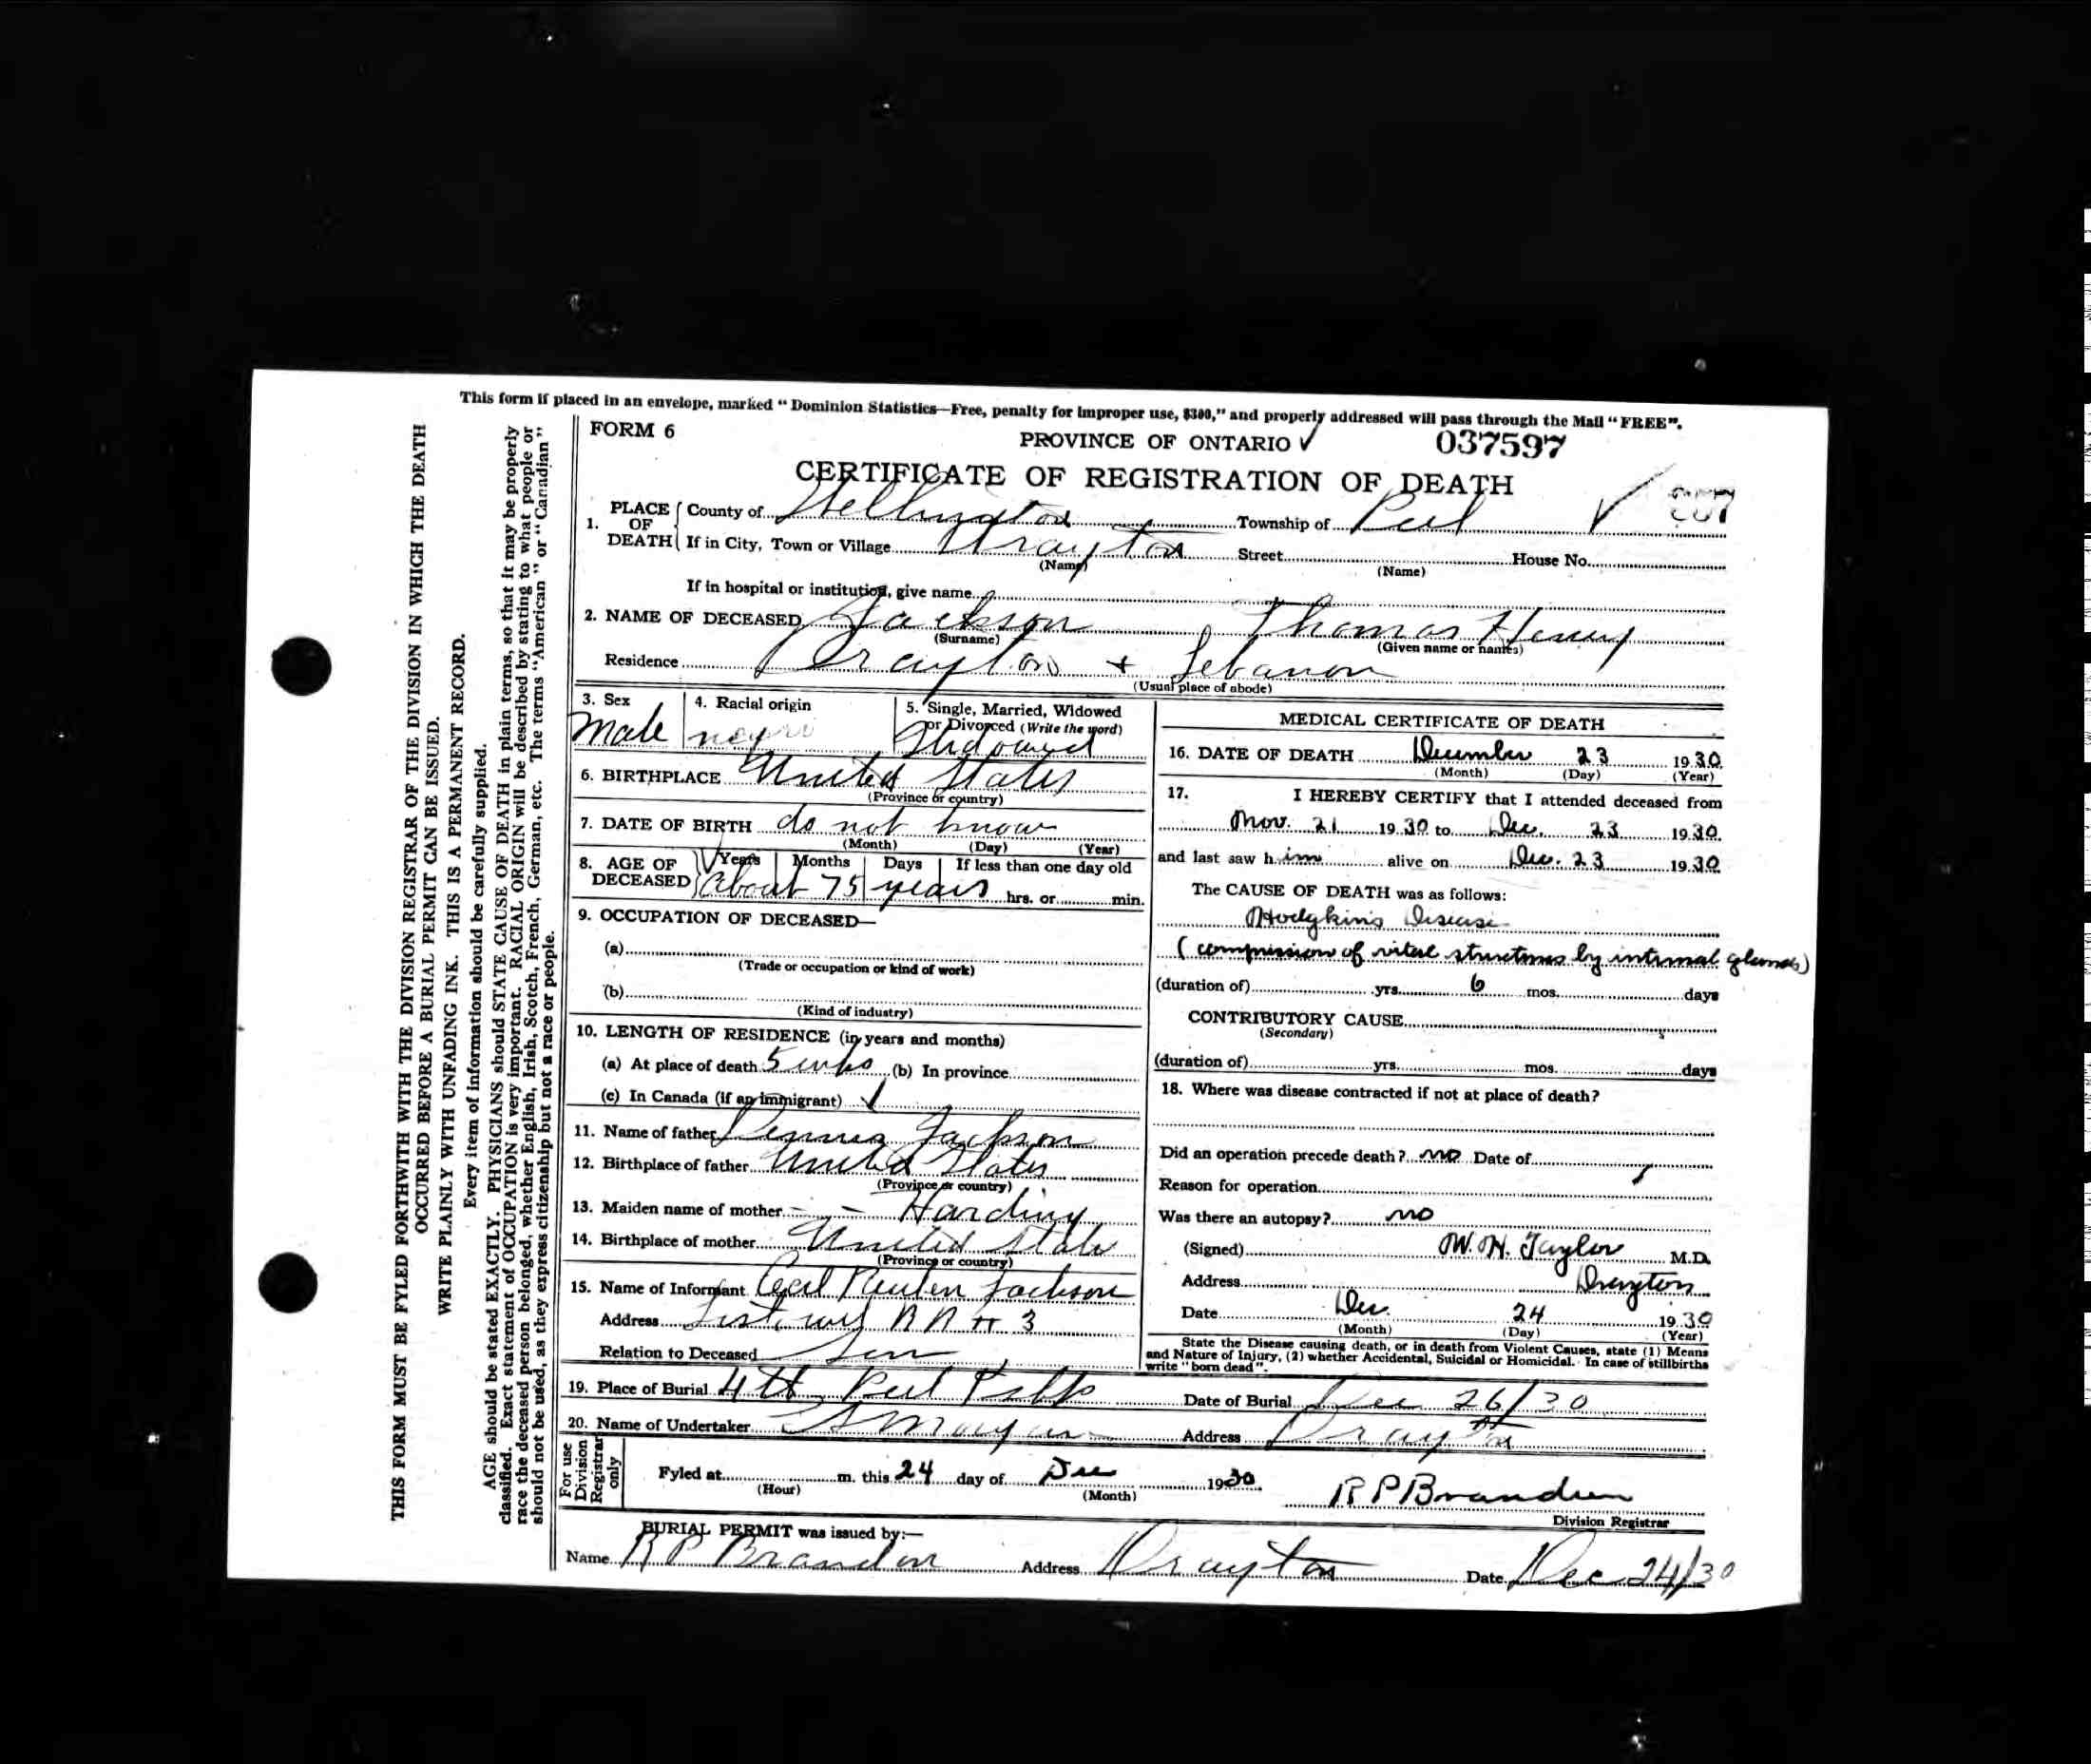 This form if placed in an envelope, marked "Dominion Statistics—Free, penalty for improper use, $300," and properly addressed will pass through the Mail "FREE".
FORM 6
PROVINCE OF ONTARIO ✓ 037597
CERTIFICATE OF REGISTRATION OF DEATH
1. PLACE OF DEATH County of Wellington Township of Peel ✓
If in City, Town or Village Drayton Street House No.
(Name) (Name)
If in hospital or institution, give name
2. NAME OF DECEASED Jackson Thomas Henry
(Surname) (Given name or names)
Residence Drayton + Lebanon
(Usual place of abode)
3. Sex Male
4. Racial origin negro
5. Single, Married, Widowed or Divorced (Write the word) Widowed
6. BIRTHPLACE United States
(Province or country)
7. DATE OF BIRTH do not know
(Month) (Day) (Year)
8. AGE OF DECEASED Years Months Days If less than one day old
about 75 years hrs. or min.
9. OCCUPATION OF DECEASED—
(a)
(Trade or occupation or kind of work)
(b)
(Kind of industry)
10. LENGTH OF RESIDENCE (in years and months)
(a) At place of death 5 wks (b) In province
(c) In Canada (if an immigrant) ✓
11. Name of father Dennis Jackson
12. Birthplace of father United States
(Province or country)
13. Maiden name of mother - - Harding
14. Birthplace of mother United States
(Province or country)
15. Name of Informant Cecil Reuben Jackson
Address Listowel R R # 3
Relation to Deceased Son
MEDICAL CERTIFICATE OF DEATH
16. DATE OF DEATH December 23 1930
(Month) (Day) (Year)
17. I HEREBY CERTIFY that I attended deceased from
Nov. 21 1930 to Dec. 23 1930
and last saw him alive on Dec. 23 1930
The CAUSE OF DEATH was as follows:
Hodgkin's Disease
(compression of vital structures by internal glands)
(duration of) yrs. 6 mos. days
CONTRIBUTORY CAUSE
(Secondary)
(duration of) yrs. mos. days
18. Where was disease contracted if not at place of death?
Did an operation precede death? no Date of
Reason for operation
Was there an autopsy? no
(Signed) W. H. Taylor M.D.
Address Drayton
Date Dec. 24 1930
(Month) (Day) (Year)
State the Disease causing death, or in death from Violent Causes, state (1) Means
and Nature of Injury, (2) whether Accidental, Suicidal or Homicidal. In case of stillbirths
write "born dead".
19. Place of Burial 4th Peel Date of Burial Dec 26/30
20. Name of Undertaker Address Drayton
For use Division Registrar only
Fyled at m. this 24 day of Dec 1930
(Hour) (Month)
R P Brandon
Division Registrar
BURIAL PERMIT was issued by:—
Name R P Brandon Address Drayton Date Dec 24/30
THIS FORM MUST BE FYLED FORTHWITH WITH THE DIVISION REGISTRAR OF THE DIVISION IN WHICH THE DEATH
OCCURRED BEFORE A BURIAL PERMIT CAN BE ISSUED.
WRITE PLAINLY WITH UNFADING INK. THIS IS A PERMANENT RECORD.
Every item of information should be carefully supplied.
AGE should be stated EXACTLY. PHYSICIANS should STATE CAUSE OF DEATH in plain terms, so that it may be properly
classified. Exact statement of OCCUPATION is very important. RACIAL ORIGIN will be described by stating to what people or
race the deceased person belonged, whether English, Irish, Scotch, French, German, etc. The terms "American" or "Canadian"
should not be used, as they express citizenship but not a race or people.